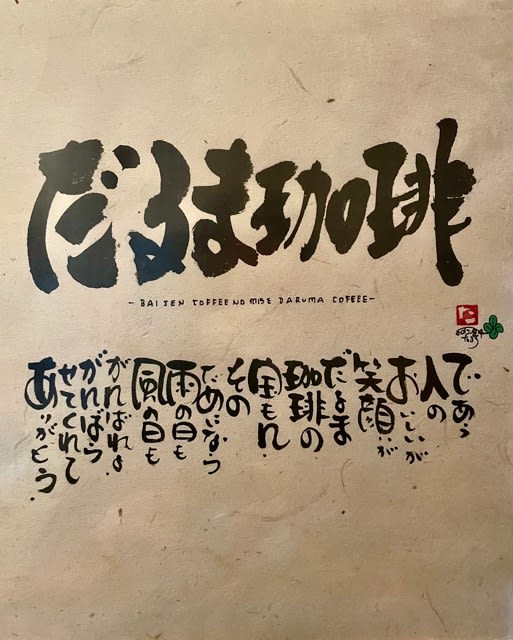 だるま珈琲
- BAISEN TOFFEE NO MISE DARUMA COFFEE -
であう
人の
おいしいが
笑顔が
だるま
珈琲の
宝もん.
その
ためになら
雨の日も
風の日も
がんばれる.
がんばら
せてくれて
ありがとう.